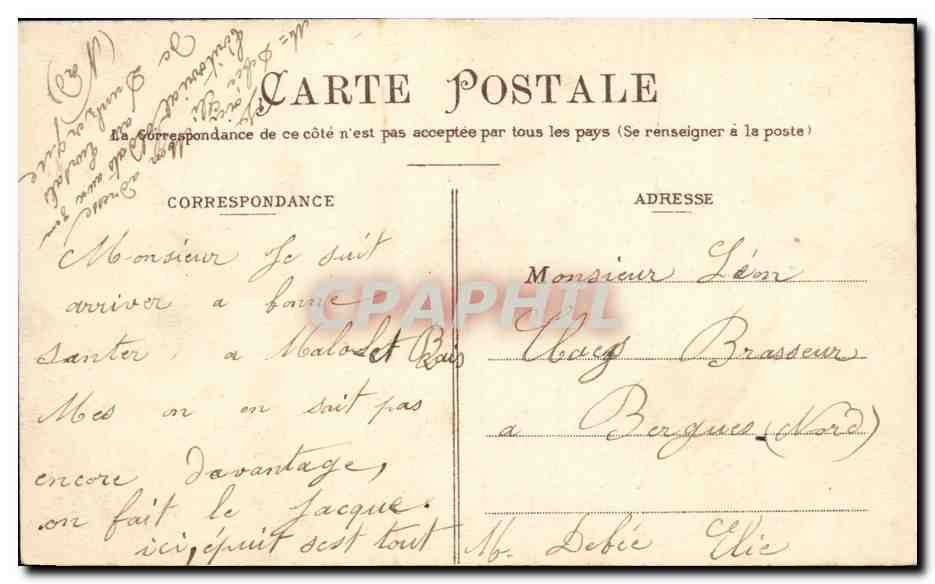 CARTE POSTALE
La Correspondance de ce côté n'est pas acceptée par tous les pays (Se renseigner à la poste)
CORRESPONDANCE
Monsieur Je suit
arriver a bonne
santer, a Malo
Mes on en sait pas
encore davantage,
on fait le Jacque.
ici, épuit sest tout
ADRESSE
Monsieur Léon
Brasseur
a Bergues (Nord)
M. Debée Elie
Mon adresse
M= Debée Elie
Soldat au
Teritorial
De
Dunkerque
(Nord)
CPAPHIL